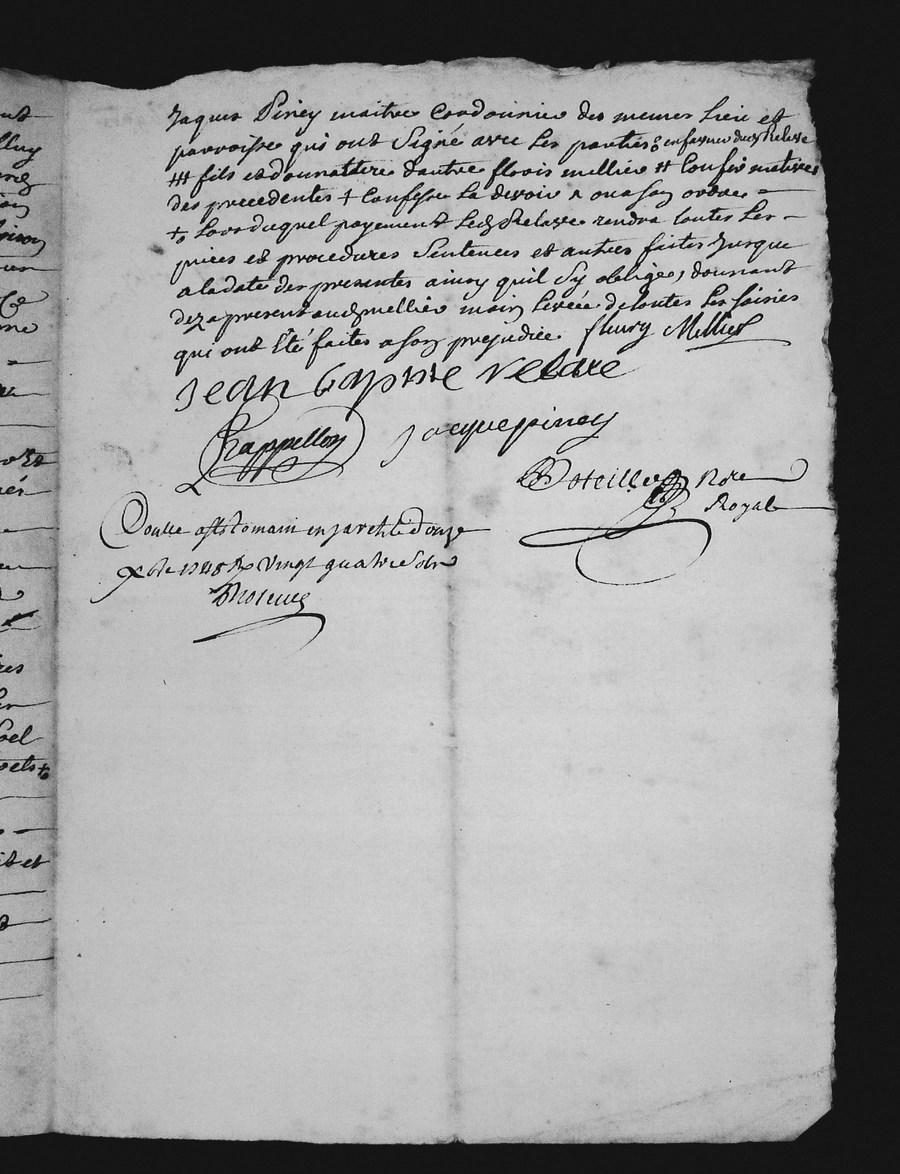 Jaques Piney maitre Cordonnier des memes Lieu et
parroisse qui ont Signé avec Les parties § en faveur dud Relave
ⵌ fils et donnattere d'autre flouis mellier # Confirmatives
des precedentes + Confesse La devoir ^ ou a son ordre =
+o Lors duquel payement Led Relave rendra toutes Les –
pieces et procedures Sentences et autres faites Jusque
a la date des presentes ainsy quil Sy oblige, donnant
dez a present aud mellier main Levée de toutes Les saisies
qui ont Eté faites a Son prejudice. fleury Mellier
Jean baptiste relave
Chappellon Jacque piney
Poteille Nore
Royal
Conlle a St Romain en Jarest le douze
xbre 1748 R vingt quatre Sols